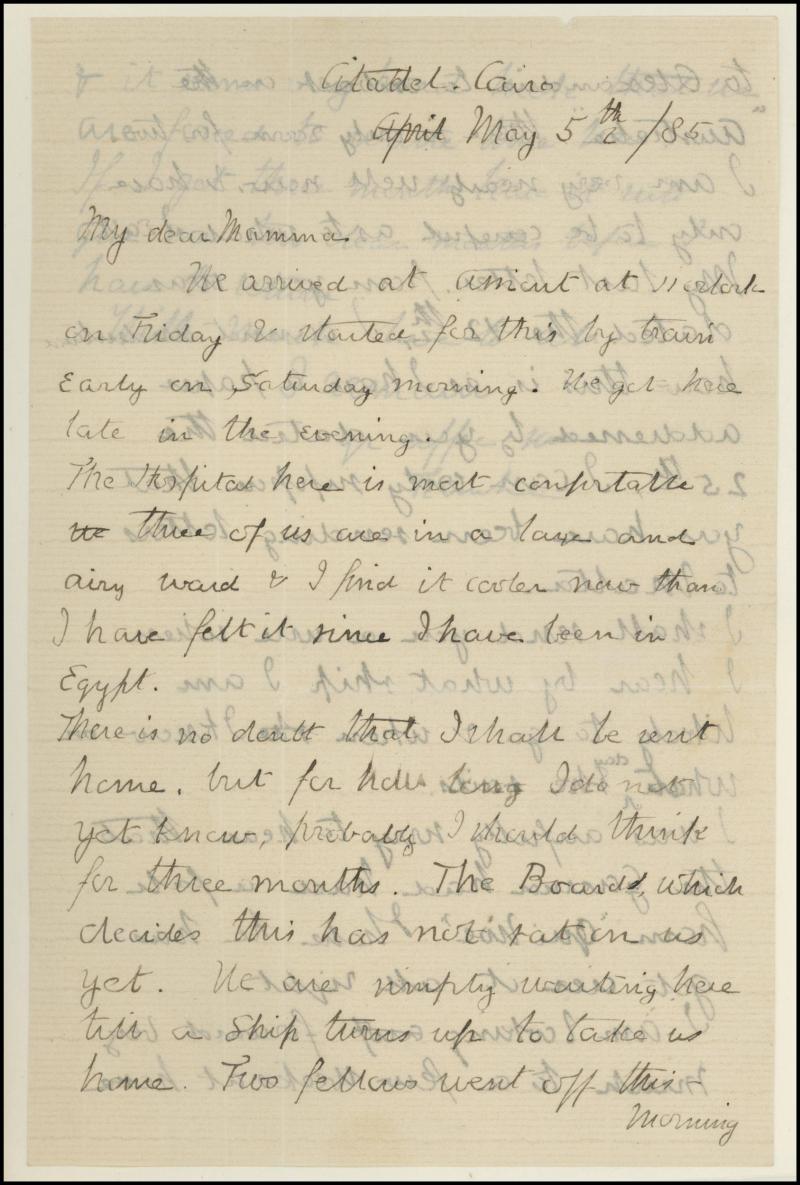 Citadel. Cairo
April May 5th /85
My dear Mamma
We arrived at Assiout at 11 oclock
on Friday & started for this by train
early on Saturday morning. We got here
late in the evening.
The Hospital here is most comfortable
we three of us are in a large and
airy ward & I find it cooler now than
I have felt it since I have been in
Egypt.
There is no doubt that I shall be sent
home, but for how long I do not
yet know, probably I should think
for three months. The Board, which
decides this has not sat on us
yet. We are simply waiting here
till a ship turns up to take us
home. Two fellows went off this
morning